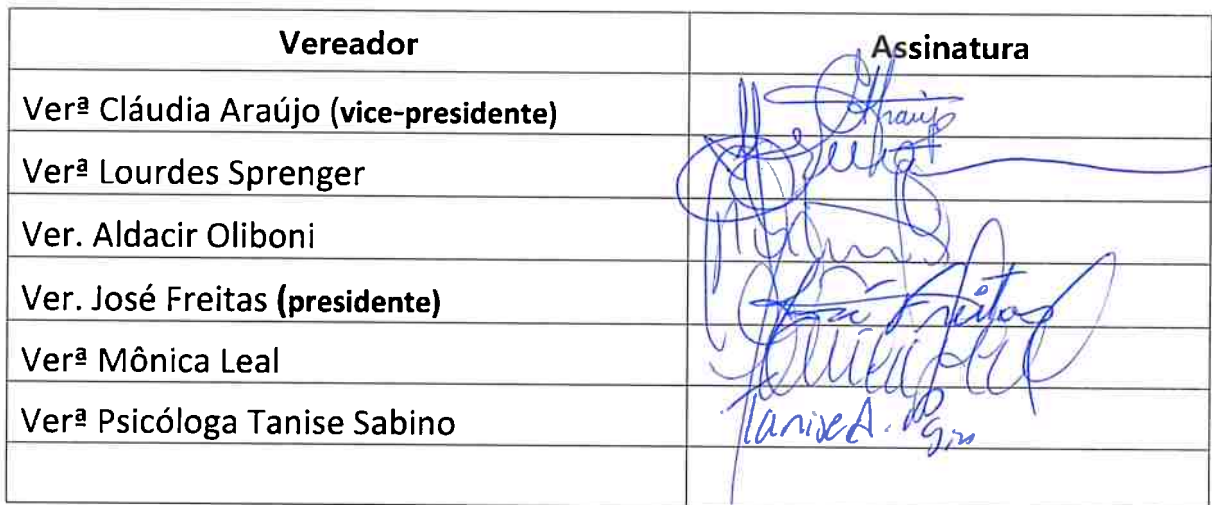 Vereador Assinatura
Verª Cláudia Araújo (vice-presidente) Araujo
Verª Lourdes Sprenger
Ver. Aldacir Oliboni
Ver. José Freitas (presidente) José Freitas
Verª Mônica Leal
Verª Psicóloga Tanise Sabino Tanise A.